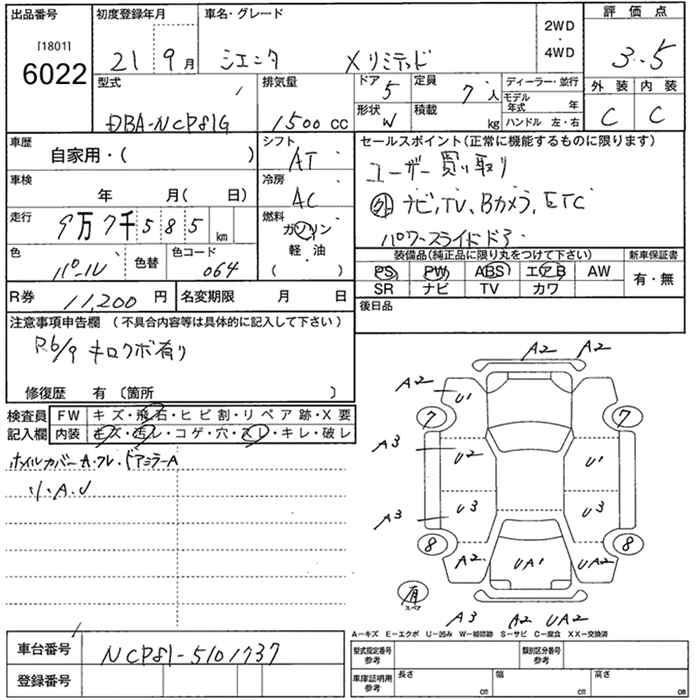 出品番号 初度登録年月 車名・グレード 2WD ・ 4WD 評価点
［1801］
6022 21 9月 シエンタ Xリミテッド 3.5
型式 排気量 ドア 5 定員 7人 ディーラー・並行 外装 内装
モデル年式 年
DBA-NCP81G 1500cc 形状 W 積載 kg ハンドル 左・右 C C
車歴 自家用・( ) シフト AT セールスポイント(正常に機能するものに限ります)
ユーザー買い取り
車検 年 月( 日) 冷房 AC
外 ナビ,TV、Bカメラ,ETC
走行 9万7千585km 燃料 ガソリン 軽・油 ( )
パワースライドドア
色 パール 色替 色コード 064
装備品(純正品に限り丸をつけて下さい) 新車保証書
PS PW ABS エアB AW 有・無
SR ナビ TV カワ
R券 11,200円 名変期限 月 日
後日品
注意事項申告欄 (不具合内容等は具体的に記入して下さい)
修復歴 有 〔箇所 〕
検査員 FW キズ・飛石・ヒビ割・リペア跡・X要
記入欄 内装 キズ・汚レ・コゲ・穴・スレ・キレ・破レ
ホイルカバーA・フレ・ドアミラーA
小A.U
A2 A2
A2 U1
7 7
A3 U2 U1
A3 U3 U3
8 8
A2 UA1 UA2
有 スペア
A3 A2 UA2
A－キズ E－エクボ U－凹み W－補修跡 S－サビ C－腐食 XX－交換済
車台番号 NCP81-5101737 型式指定番号 参考 類別区分番号 参考
登録番号 車庫証明用 参考 長さ cm 幅 cm 高さ cm